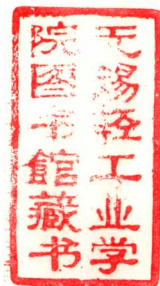 无锡轻工业学
院图书馆藏书